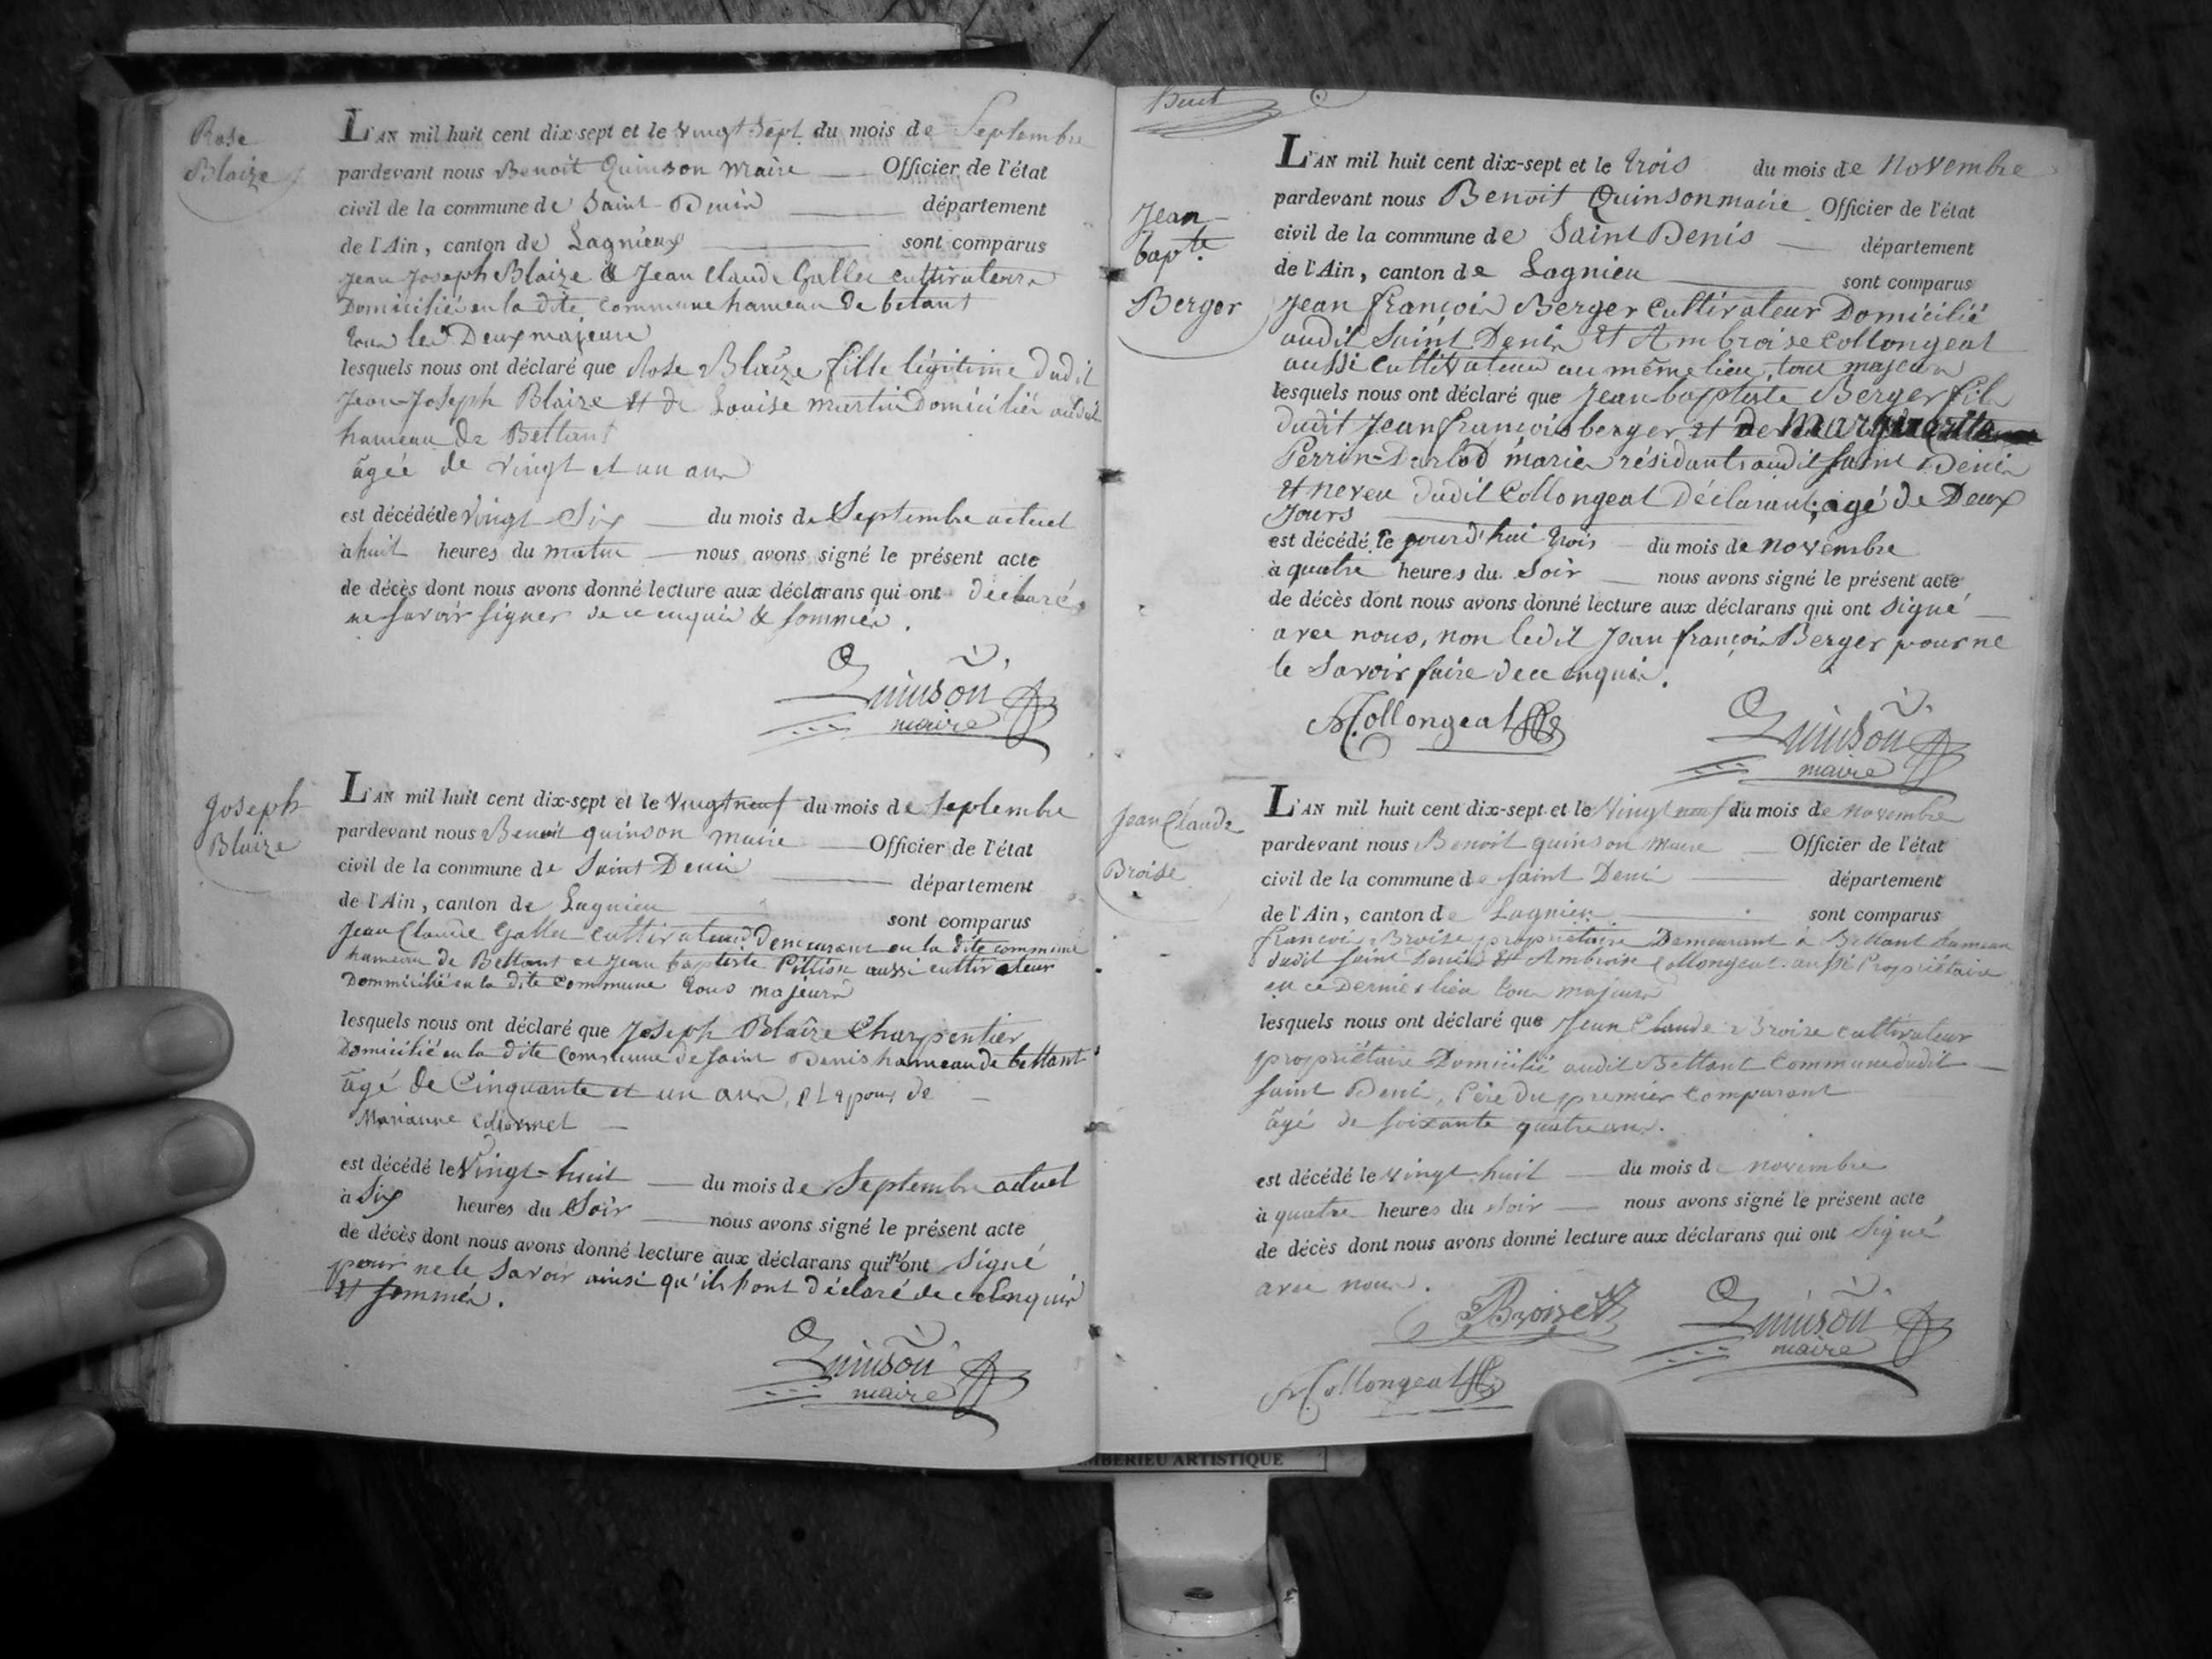 Rose
Blaize
L'AN mil huit cent dix-sept et le vingt sept du mois de Septembre
pardevant nous Benoit Quinson maire Officier de l'état
civil de la commune de Saint Denis département
de l'Ain, canton de Lagnieux sont comparus
Jean Joseph Blaize & Jean Claude Gallet cultivateurs
Domiciliés en la dite commune hameau de betant
tous les Deux majeurs
lesquels nous ont déclaré que Rose Blaize fille légitime dudit
Jean-Joseph Blaize et de Louise Martin Domiciliés audit
hameau de Bettant
âgée de vingt et un ans
est décédée le vingt Six du mois de Septembre actuel
à huit heures du matin nous avons signé le présent acte
de décès dont nous avons donné lecture aux déclarans qui ont déclaré
ne savoir signer de ce enquis & sommés.
Quinson
maire
Joseph
Blaize
L'AN mil huit cent dix-sept et le Vingt neuf du mois de septembre
pardevant nous Benoit quinson maire Officier de l'état
civil de la commune de Saint Denis département
de l'Ain, canton de Lagnieu sont comparus
Jean Claude Gallet cultivateur demeurant en la dite commune
hameau de Bettant et Jean baptiste Pittion aussi cultivateur
Dommicilié en la dite commune tous majeurs
lesquels nous ont déclaré que Joseph Blaîze Charpentier
Domicilié en la dite commune de saint Denis hameau de bettant
âgé de Cinquante et un ans, et époux de
Marianne
est décédé le Vingt-huit du mois de Septembre actuel
à Six heures du Soir nous avons signé le présent acte
de décès dont nous avons donné lecture aux déclarans qui n'ont signé
pour ne le savoir ainsi qu'ils l'ont déclaré de ce Enquis
et sommés.
Quinson
maire
L'AN mil huit cent dix-sept et le trois du mois de Novembre
Jean
bapte.
Berger
pardevant nous Benoit Quinson maire Officier de l'état
civil de la commune de Saint Denis département
de l'Ain, canton de Lagnieu sont comparus
Jean françois Berger Cultivateur Domicilié
audit Saint Denis et Ambroise Collongeat
aussi Cultivateur au même lieu, tous majeurs
lesquels nous ont déclaré que Jean baptiste Berger fils
dudit Jean françois berger et de Marguerite
Perrin-Darlod mariés résidants audit saint Denis
et neveu dudit Collongeat Déclarant, agé de Deux
Jours
est décédé le jourd'hui trois du mois de novembre
à quatre heures du Soir nous avons signé le présent acte
de décès dont nous avons donné lecture aux déclarans qui ont signé
avec nous, non ledit Jean françois Berger pour ne
le Savoir faire de ce enquis.
A Collongeat
Quinson
maire
Jean Claude
Broise
L'AN mil huit cent dix-sept et le Vingt neuf du mois de novembre
pardevant nous Benoit quinson Maire Officier de l'état
civil de la commune de saint Deni département
de l'Ain, canton de Lagnieu sont comparus
françois Broise propriétaire Demeurant à Bettant hameau
dudit saint Denis et Ambroise Collongeat aussi Propriétaire
en ce dernier lieu tous majeurs
lesquels nous ont déclaré que Jean Claude Broize cultivateur
propriétaire Domicilié audit Bettant Commune dudit
saint Deni, Père du premier Comparant
âgé de soixante quatre ans.
est décédé le vingt huit du mois de novembre
à quatre heures du soir nous avons signé le présent acte
de décès dont nous avons donné lecture aux déclarans qui ont signé
avec nous.
Broize
Quinson
maire
A Collongeat
MBERIEU ARTISTIQUE